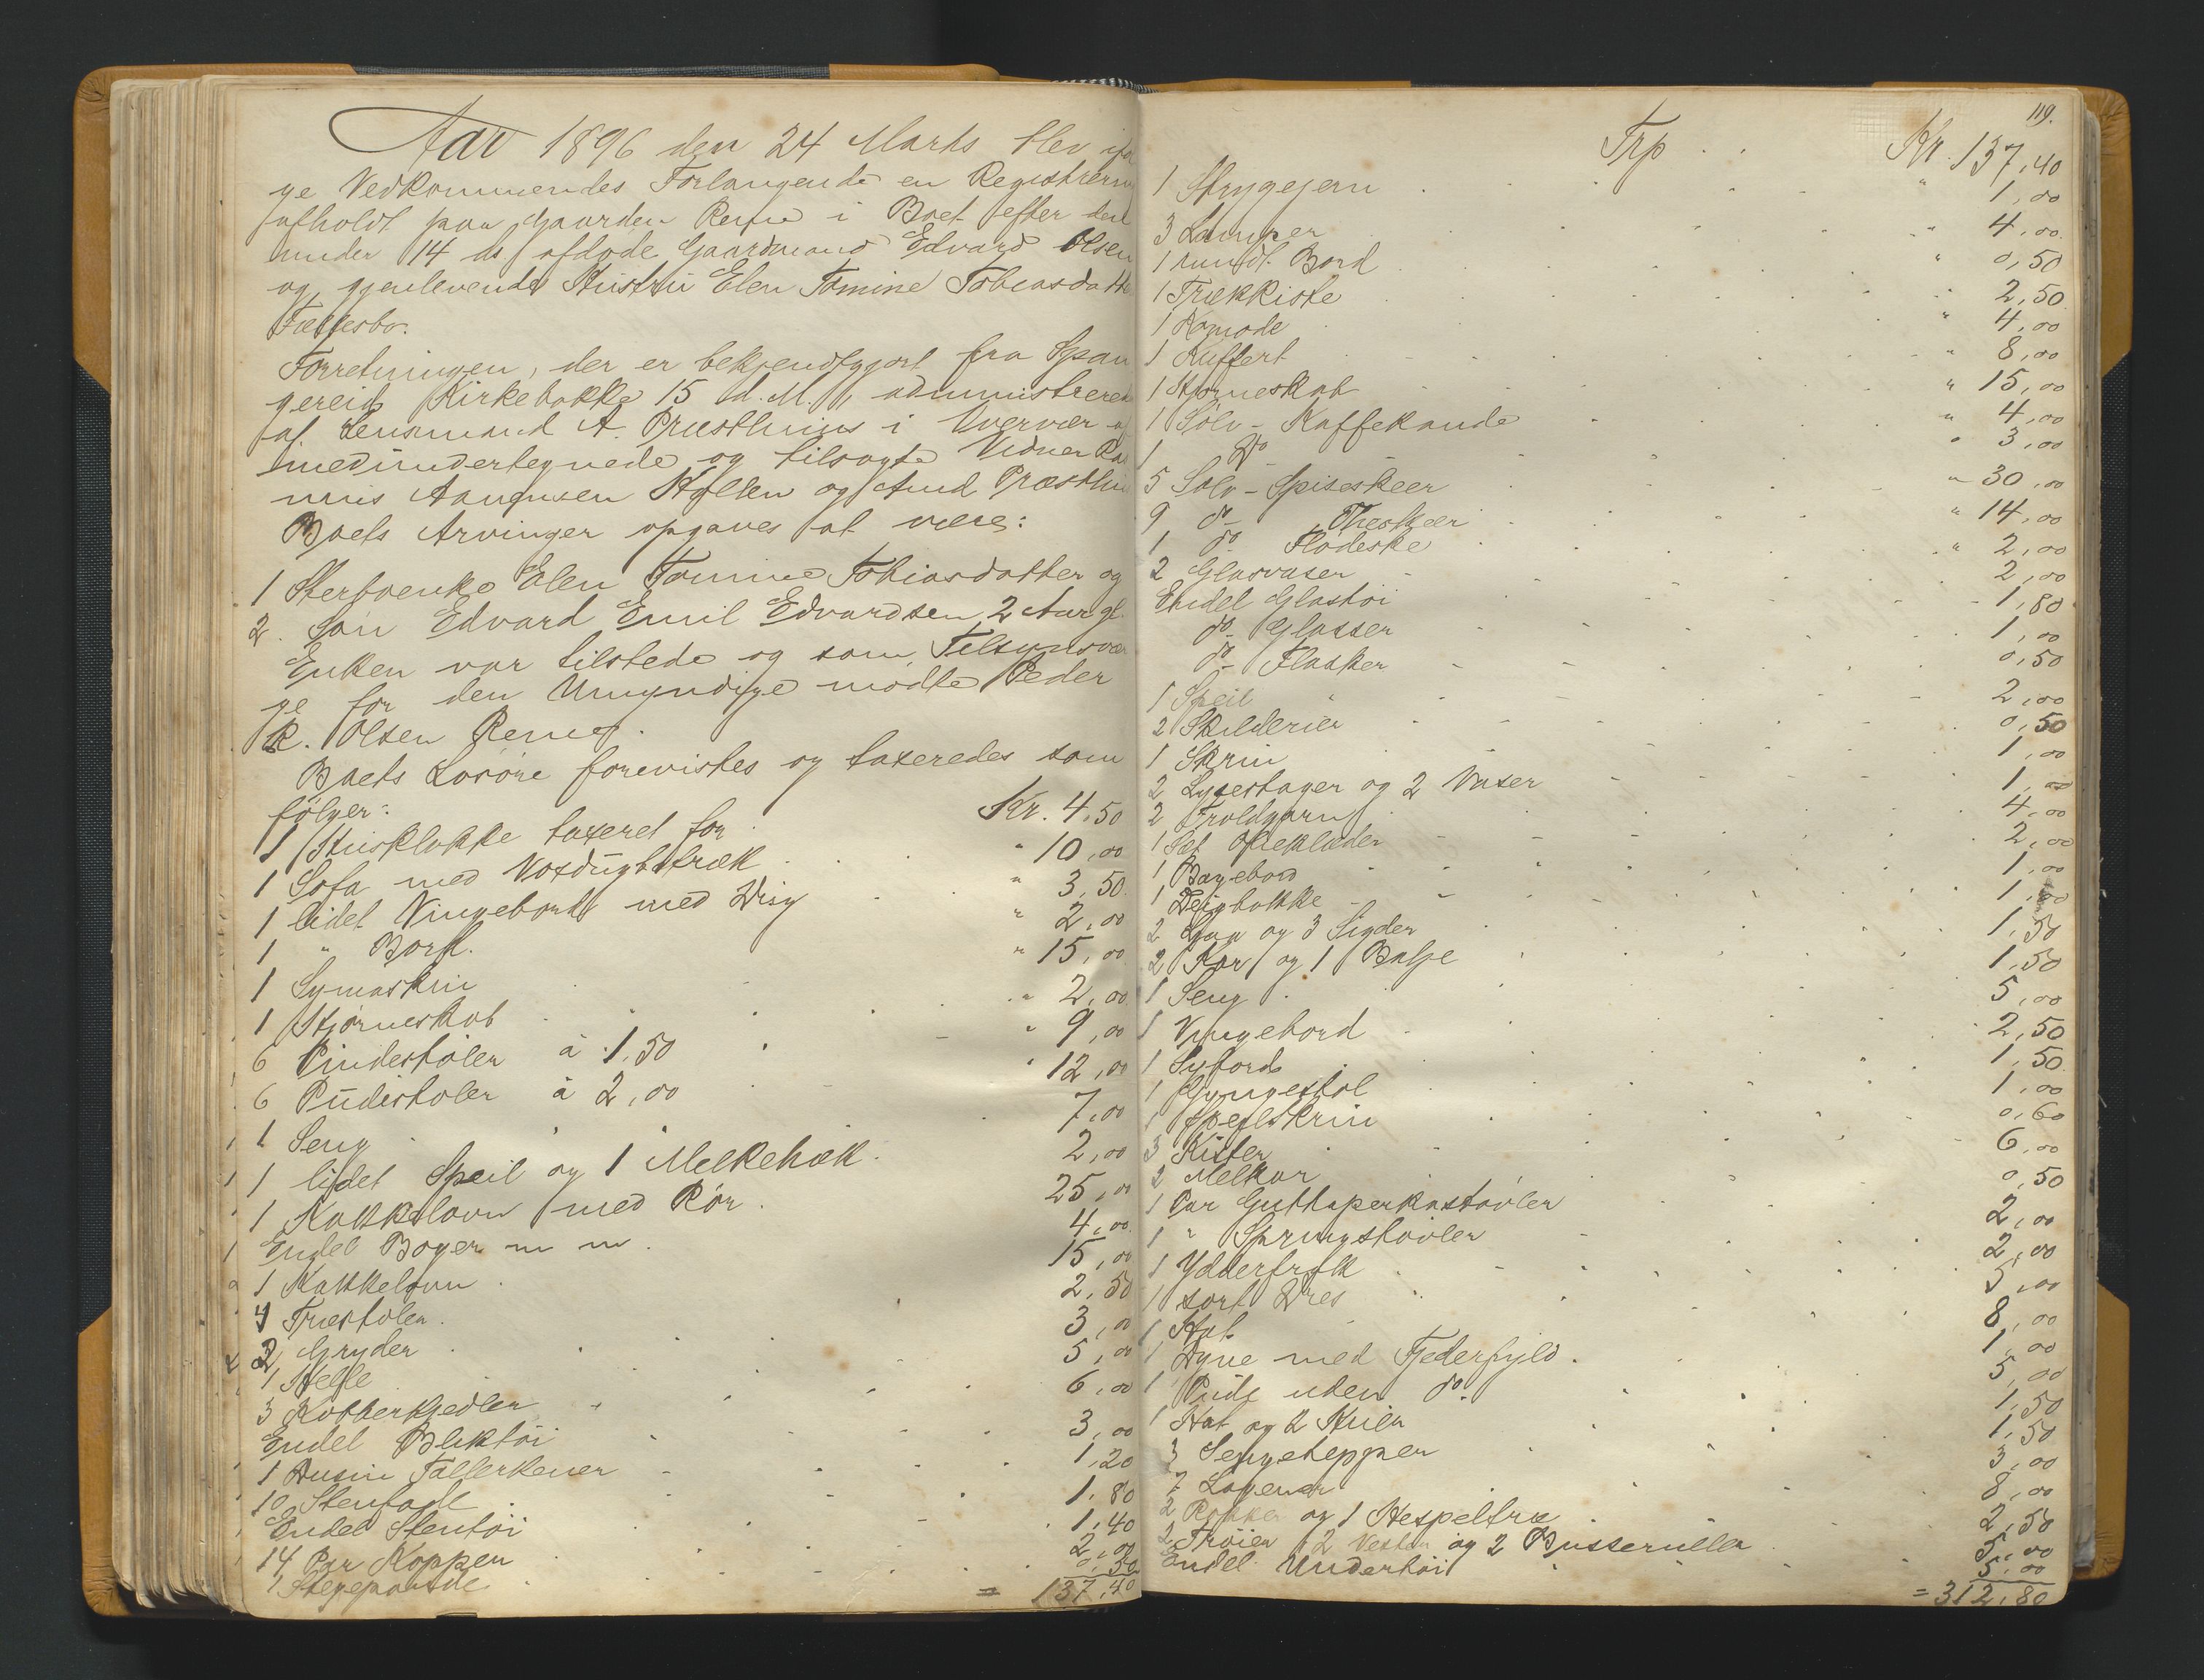 Aar 1896 den 24 Marts blev iføl
ge Vedkommendes Forlangende en Registrering
afholdt paa Gaarden Reme i Boet efter den
under 14 ds. afdøde Gaardmand Edvard Olsen
og gjenlevende Hustru Elen Tomine Tobiasdatter
Fællesbo.
Forretningen, der er bekjendtgjort fra Span
gereid Kirkebakke 15 d. M., administreredes
af Lensmand A. Præsthuus i Overvær af
medundertegnede og tilsagte Vidner
Aanensen Hyllen og Aned Præsthus
Boets Arvinger opgaves at være:
1 Sterboenke Elen Tomine Tobiasdatter og
2. Søn Edvard Emil Edvardsen, 2 Aar gl.
Enken var tilstede og som Tilsynsvær
ge for den Umyndige mødte Peder
R. Olsen Reme.
Boets Løsøre forevistes og taxeredes som
følger:
1 Stueklokke taxeret for Kr. 4,50
1 Sofa med Voxdugbetræk " 10,00
1 lidet Vingebord med Drag " 3,50
1 " Bord " 2,00
1 Symaskin " 15,00
1 Hjørneskab " 2,00
6 Pindestoler à 1,50 " 9,00
6 Pudestoler à 2,00 " 12,00
1 Seng 7,00
1 lidet Speil og 1 Melkehæk 2,00
1 Kakkelovn med Rør 25,00
Endel Bøger m m 4,00
1 Kakkelovn 15,00
4 Træstoler 2,50
2 Gryder 3,00
1 Helle 5,00
3 Kobberkjedler 6,00
Endel Bliktøi 3,00
1 Dusin Tallerkener 1,20
10 Stenfade 1,80
Endel Stentøi 1,40
14 Par Kopper 2,00
1 Stegepande 0,50
= 137,40
119.
Trp. Kr. 137,40
1 Strygejern " 1,00
3 Lamper " 4,00
1 rundt Bord " 0,50
1 Trækkiste " 2,50
1 Komode " 4,00
1 Kuffert " 8,00
1 Hjørneskab " 15,00
1 Sølv-Kaffekande " 4,00
1 Do " 3,00
5 Sølv-Spiseskeer " 30,00
9 do Theskeer " 14,00
1 do Flødeske " 2,00
2 Glasvaser 2,00
Endel Glastøi 1,80
do Glasser 1,00
do Flasker 0,50
1 Speil 2,00
2 Skilderier 0,50
1 Skrin 1,00
2 Lysestager og 2 Vaser 1,00
2 Troldgarn 4,00
1 Sæt Olieklæder 2,00
1 Bagebord 1,00
1 Deigbakke 1,00
2 Ljaa og 3 Sigder 1,50
2 Kar og 1 Balje 1,50
1 Seng 5,00
1 Vingebord 2,50
1 Sybord 1,50
1 Gyngestol 1,00
1 Speilskrin 0,60
3 Kister 6,00
2 Melkar 0,50
1 Par Guttaperkastøvler 2,00
1 " Springstøvler 2,00
1 Ydderfrak 5,00
1 sort Dres 8,00
1 Hat 1,00
1 Dyne med Fjederfyld 5,00
1 Pude uden do 1,50
1 Hat og 2 Huer 1,50
3 Sengetepper 3,00
7 Lagener 8,00
2 Rokker og 1 Hespeltræ 2,50
2 Trøier 2 Vester og 2 Busseruller 5,00
Endel Undertøi 5,00
= 312,80